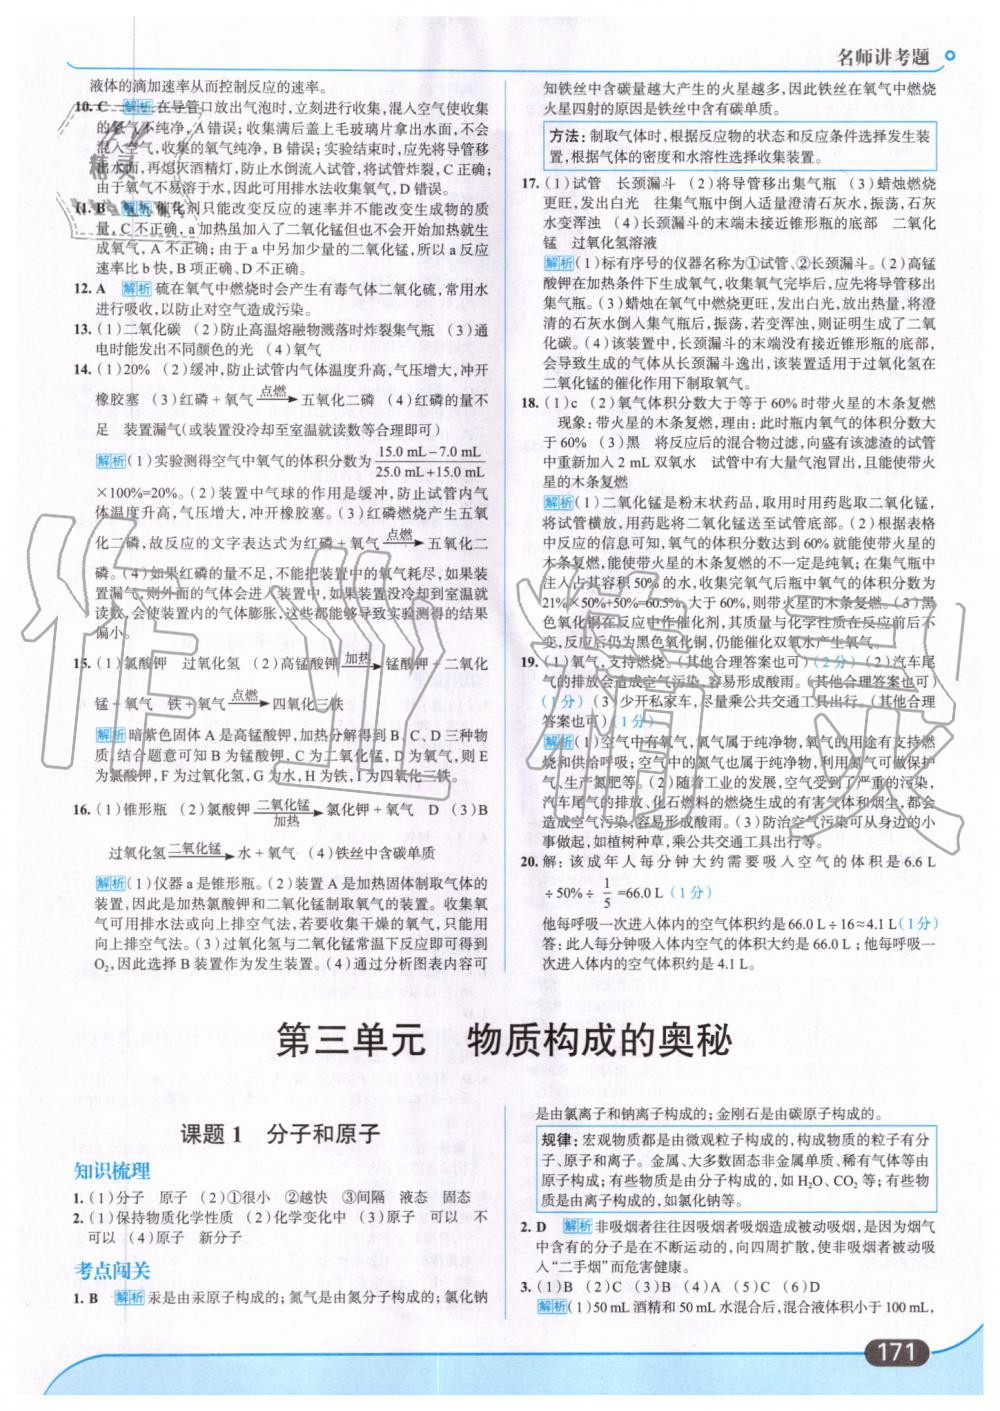 名师讲考题
液体的滴加速率从而控制反应的速率。
10. C 解析 在导管口放出气泡时,立刻进行收集,混入空气使收集
的氧气不纯净,A错误;收集满后盖上毛玻璃片拿出水面,不会
混入空气,收集的氧气纯净,B错误;实验结束时,应先将导管移
出水面,再熄灭酒精灯,防止水倒流入试管,将试管炸裂,C正确;
由于氧气不易溶于水,因此可用排水法收集氧气,D错误。
11. B 解析 催化剂只能改变反应的速率并不能改变生成物的质
量,C不正确,a加热虽加入了二氧化锰但也不会开始加热就生
成氧气,A不正确;由于a中另加少量的二氧化锰,所以a反应
速率比b快,B项正确、D不正确。
12. A 解析 硫在氧气中燃烧时会产生有毒气体二氧化硫,常用水
进行吸收,以防止对空气造成污染。
13. (1)二氧化碳 (2)防止高温熔融物溅落时炸裂集气瓶 (3)通
电时能发出不同颜色的光 (4)氧气
14. (1)20% (2)缓冲,防止试管内气体温度升高,气压增大,冲开
橡胶塞 (3)红磷+氧气 点燃→ 五氧化二磷 (4)红磷的量不
足 装置漏气(或装置没冷却至室温就读数等合理即可)
解析 (1)实验测得空气中氧气的体积分数为 (15.0 mL-7.0 mL)/(25.0 mL+15.0 mL)
×100%=20%。(2)装置中气球的作用是缓冲,防止试管内气
体温度升高,气压增大,冲开橡胶塞。(3)红磷燃烧产生五氧
化二磷,故反应的文字表达式为红磷+氧气 点燃→ 五氧化二
磷。(4)如果红磷的量不足,不能把装置中的氧气耗尽,如果装
置漏气,则外面的气体会进入装置中,如果装置没冷却到室温就
读数,会使装置内的气体膨胀,这些都能够导致实验测得的结果
偏小。
15. (1)氯酸钾 过氧化氢 (2)高锰酸钾 加热→ 锰酸钾+二氧化
锰+氧气 铁+氧气 点燃→ 四氧化三铁
解析 暗紫色固体A是高锰酸钾,加热分解得到B、C、D三种物
质,结合题意可知B为锰酸钾,C为二氧化锰,D为氧气,则E
为氯酸钾,F为过氧化氢,G为水,H为铁,I为四氧化三铁。
16. (1)锥形瓶 (2)氯酸钾 二氧化锰/加热→ 氯化钾+氧气 D (3)B
过氧化氢 二氧化锰→ 水+氧气 (4)铁丝中含碳单质
解析 (1)仪器a是锥形瓶。(2)装置A是加热固体制取气体的
装置,因此是加热氯酸钾和二氧化锰制取氧气的装置。收集氧
气可用排水法或向上排空气法,若要收集干燥的氧气,只能用
向上排空气法。(3)过氧化氢与二氧化锰常温下反应即可得到
O₂,因此选择B装置作为发生装置。(4)通过分析图表内容可
知铁丝中含碳量越大产生的火星越多,因此铁丝在氧气中燃烧
火星四射的原因是铁丝中含有碳单质。
方法:制取气体时,根据反应物的状态和反应条件选择发生装
置,根据气体的密度和水溶性选择收集装置。
17. (1)试管 长颈漏斗 (2)将导管移出集气瓶 (3)蜡烛燃烧
更旺,发出白光 往集气瓶中倒入适量澄清石灰水,振荡,石灰
水变浑浊 (4)长颈漏斗的末端未接近锥形瓶的底部 二氧化
锰 过氧化氢溶液
解析 (1)标有序号的仪器名称为①试管、②长颈漏斗。(2)高锰
酸钾在加热条件下生成氧气,收集氧气完毕后,应先将导管移出
集气瓶。(3)蜡烛在氧气中燃烧更旺,发出白光,放出热量,将澄
清的石灰水倒入集气瓶后,振荡,若变浑浊,则证明生成了二氧
化碳。(4)该装置中,长颈漏斗末端没有接近锥形瓶的底部,
会导致生成的气体从长颈漏斗逸出,该装置适用于过氧化氢在
二氧化锰的催化作用下制取氧气。
18. (1)c (2)氧气体积分数大于等于60%时带火星的木条复燃
现象:带火星的木条复燃,理由:此时瓶内氧气的体积分数大
于60% (3)黑 将反应后的混合物过滤,向盛有该滤渣的试管
中重新加入2 mL双氧水 试管中有大量气泡冒出,且能使带火
星的木条复燃
解析 (1)二氧化锰是粉末状药品,取用时用药匙取二氧化锰,
将试管横放,用药匙将二氧化锰送至试管底部。(2)根据表格
中反应的信息可知,氧气的体积分数达到60%就能使带火星的
木条复燃,能使带火星的木条复燃的不一定是纯氧;在集气瓶中
注入占其容积50%的水,收集完氧气后瓶中氧气的体积分数为
21%×50%+50%=60.5%,大于60%,则带火星的木条复燃。(3)黑
色氧化铜在反应中作催化剂,其质量与化学性质在反应前后不
变,反应后仍为黑色氧化铜,仍能催化双氧水产生氧气。
19. (1)氧气,支持燃烧。(其他合理答案也可)(2分) (2)汽车尾
气的排放会造成空气污染,容易形成酸雨。(其他合理答案也可)
(1分) (3)少开私家车,尽量乘公共交通工具出行。(其他合理
答案也可)(1分)
解析 (1)空气中有氧气,氧气属于纯净物,氧气的用途有支持燃
烧和供给呼吸;空气中的氮气也属于纯净物,利用氮气可做保护
气,生产氮肥等。(2)随着工业的发展,空气受到了严重的污染,
汽车尾气的排放、化石燃料的燃烧生成的有害气体和烟尘,都会
造成空气污染,容易形成酸雨。(3)防治空气污染可从身边的小
事做起,如植树种草,乘公共交通工具出行等。
20. 解:该成年人每分钟大约需要吸入空气的体积是6.6 L
÷50%÷1/5=66.0 L(1分)
他每呼吸一次进入体内的空气体积约是66.0 L÷16≈4.1 L(1分)
答:此人每分钟吸入体内空气的体积大约是66.0 L;他每呼吸一
次进入体内的空气体积约是4.1 L。
第三单元 物质构成的奥秘
课题1 分子和原子
知识梳理
1. (1)分子 原子 (2)①很小 ②越快 ③间隔 液态 固态
2. (1)保持物质化学性质 (2)化学变化中 (3)原子 可以 不
可以 (4)原子 新分子
考点闯关
1. B 解析 汞是由汞原子构成的;氮气是由氮分子构成的;氯化钠
是由氯离子和钠离子构成的;金刚石是由碳原子构成的。
规律:宏观物质都是由微观粒子构成的,构成物质的粒子有分
子、原子和离子。金属、大多数固态非金属单质、稀有气体等由
原子构成;有些物质是由分子构成的,如H₂O、CO₂等;有些物
质是由离子构成的,如氯化钠等。
2. D 解析 非吸烟者往往因吸烟者吸烟造成被动吸烟,是因为烟气
中含有的分子是在不断运动的,向四周扩散,使非吸烟者被动吸
入“二手烟”而危害健康。
3. (1)B (2)C (3)B (4)A (5)C (6)D
解析 (1)50 mL酒精和50 mL水混合后,混合液体积小于100 mL,
171
作业精灵